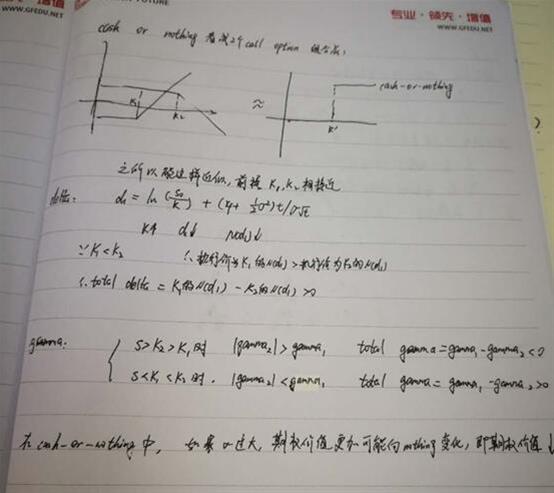 FUTURE
专业·领先·增值
WWW.GFEDU.NET
WWW.GFEDU.NET
cash or nothing 看成2个call option 组合成,
K₁ K₂ ≈ K' cash-or-nothing
之所以能这样近似, 前提 K₁, K₂ 相接近
delta: d₁ = ln(S₀/K) + (r + ½σ²)t/σ√t
K↑ d₁↓ N(d₁)↓
∵ K₁<K₂ ∴ 执行价为K₁的N(d₁) > 执行价为K₂的N(d₁)
∴ total delta = K₁的N(d₁) - K₂的N(d₁) >0
gamma: S>K₂>K₁时 |gamma₂|>gamma₁ total gamma=gamma₁-gamma₂<0
S<K₁<K₂时. |gamma₂|<gamma₁ total gamma= gamma₁-gamma₂>0
在 cash-or-nothing 中, 如果σ过大, 期权价值更加可能向nothing变化, 即期权价值↓